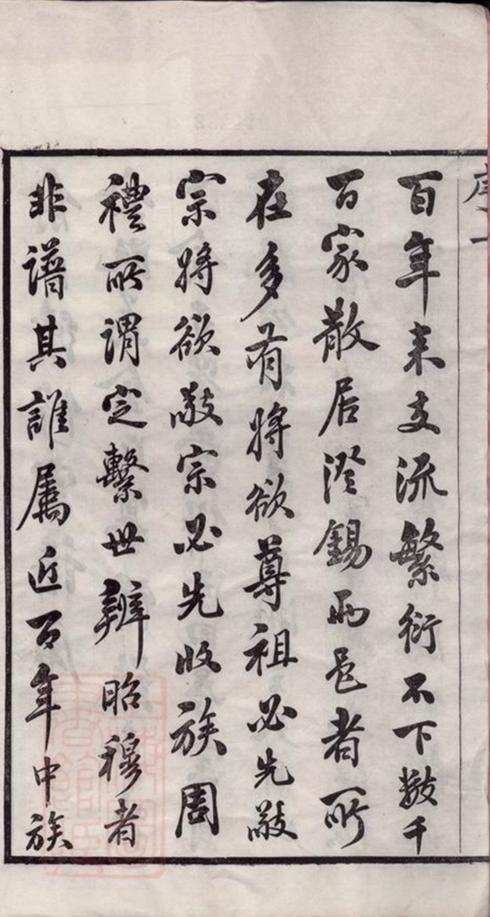 序一
百年来支流繁衍不下数千
百家散居澄錫兩邑者所
在多有将欲尊祖必先敬
宗将欲敬宗必先收族周
禮所謂定繫世辨昭穆者
非譜其誰屬近百年中族